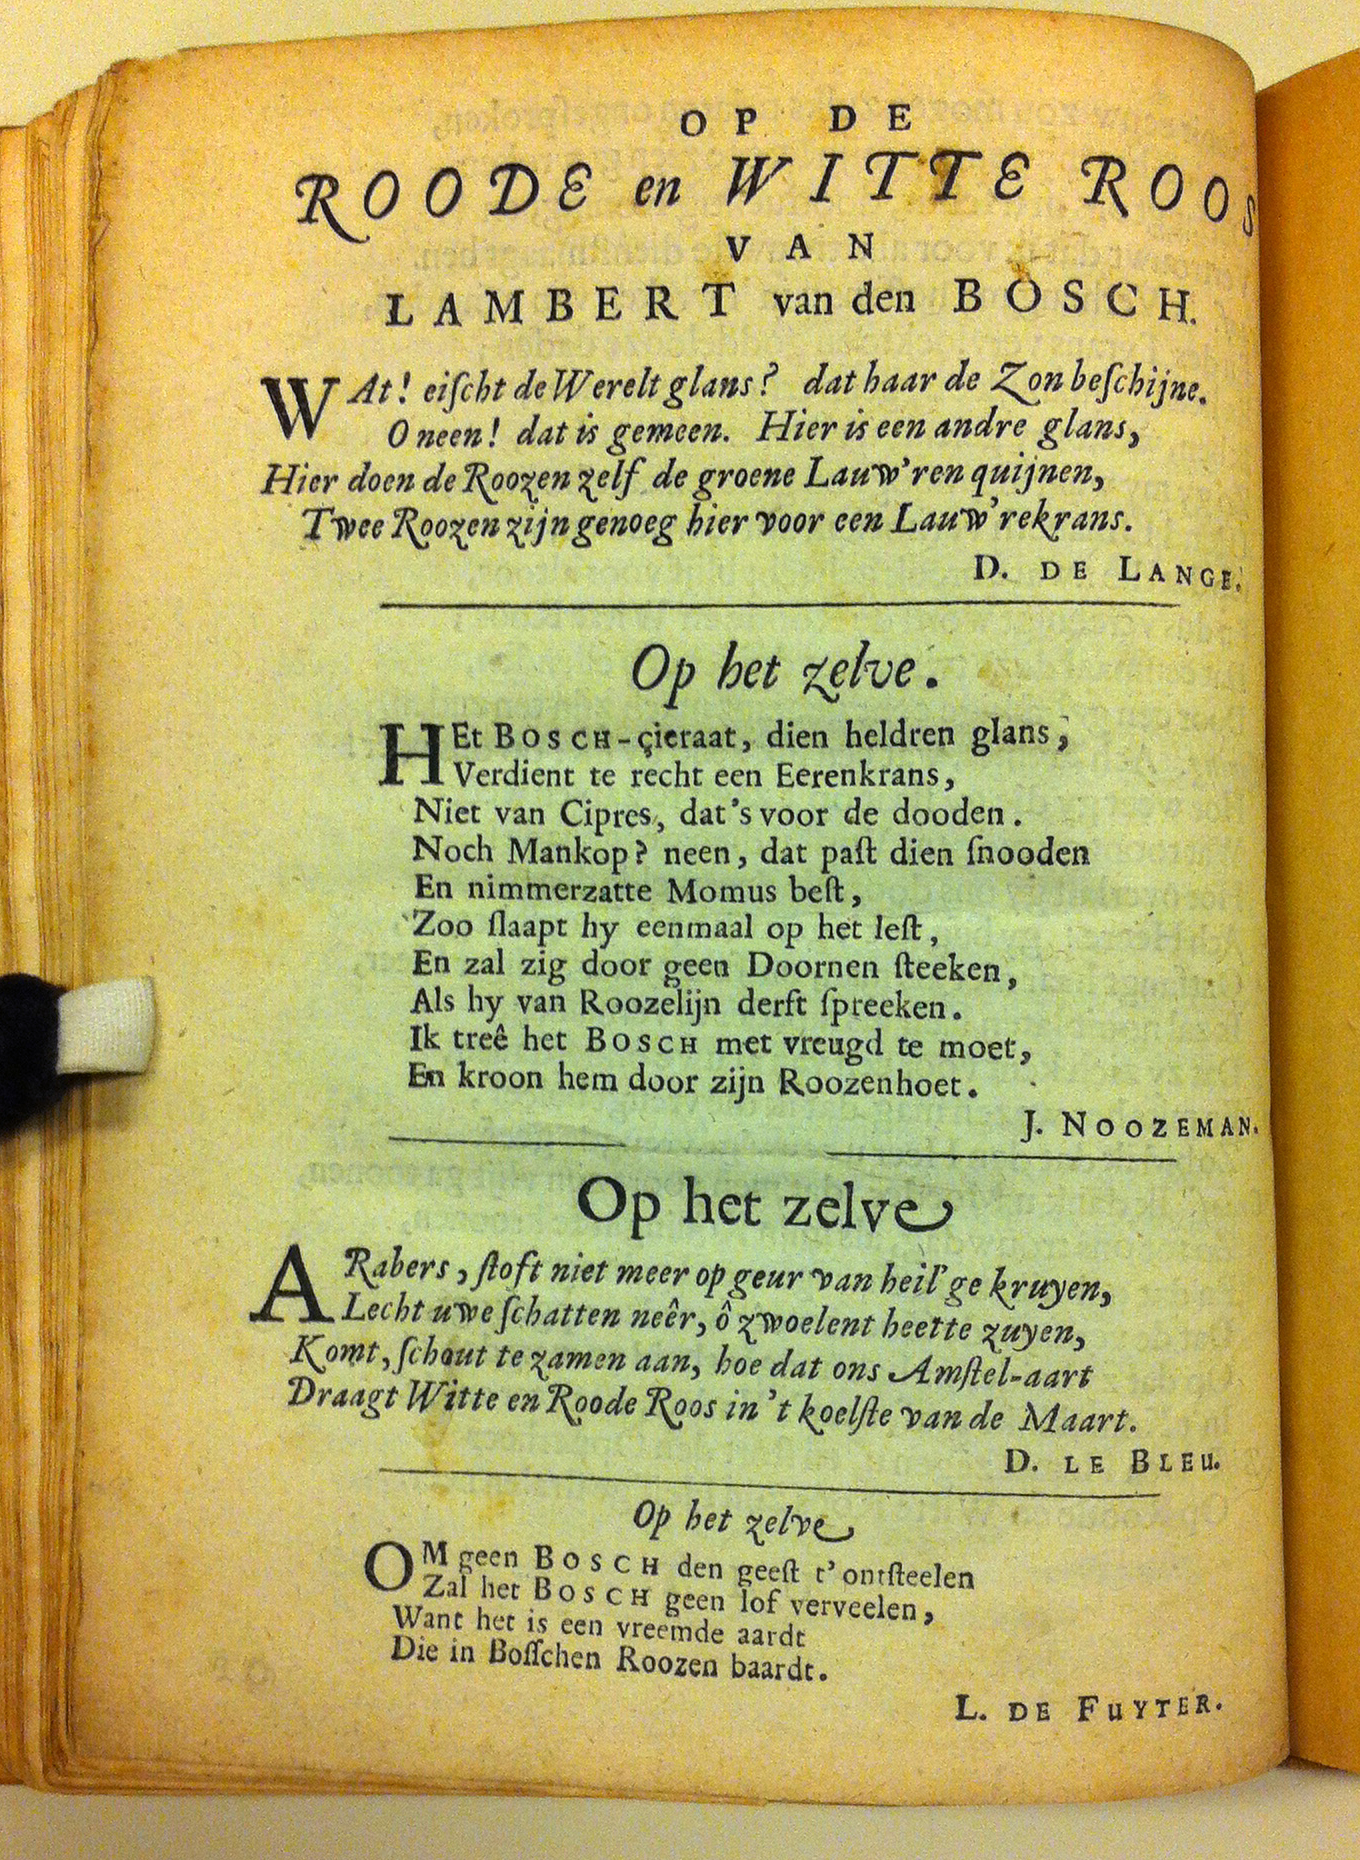 OP DE
ROODE en WITTE ROOS
VAN
LAMBERT van den BOSCH.
WAt! eiſcht de Werelt glans? dat haar de Zon beſchijne.
O neen! dat is gemeen. Hier is een andre glans,
Hier doen de Roozen zelf de groene Lauw'ren quijnen,
Twee Roozen zijn genoeg hier voor een Lauw'rekrans.
D. DE LANGE.
Op het zelve.
HEt BOSCH-çieraat, dien heldren glans,
Verdient te recht een Eerenkrans,
Niet van Cipres, dat's voor de dooden.
Noch Mankop? neen, dat paſt dien ſnooden
En nimmerzatte Momus beſt,
Zoo ſlaapt hy eenmaal op het leſt,
En zal zig door geen Doornen ſteeken,
Als hy van Roozelijn derft ſpreeken.
Ik treê het BOSCH met vreugd te moet,
En kroon hem door zijn Roozenhoet.
J. NOOZEMAN.
Op het zelve
ARabers, ſtoft niet meer op geur van heil'ge kruyen,
Lecht uwe ſchatten neêr, ô zwoelent heette zuyen,
Komt, ſchout te zamen aan, hoe dat ons Amſtel-aart
Draagt Witte en Roode Roos in 't koelſte van de Maart.
D. LE BLEU.
Op het zelve
OM geen BOSCH den geeſt t'ontſteelen
Zal het BOSCH geen lof verveelen,
Want het is een vreemde aardt
Die in Boſſchen Roozen baardt.
L. DE FUYTER.